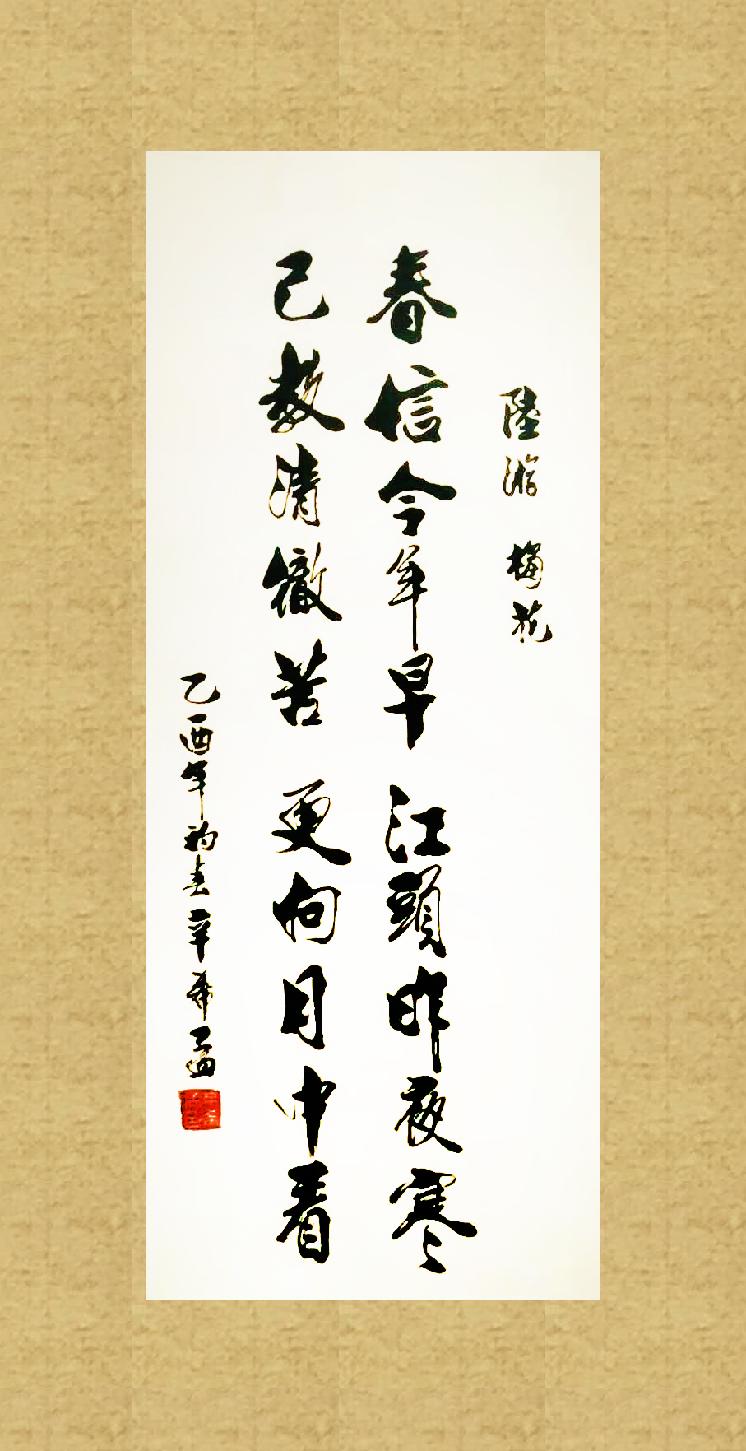 陸游 梅花
春信今年早 江頭昨夜寒
已教清徹苦 更向月中看
乙酉年初春辛希孟